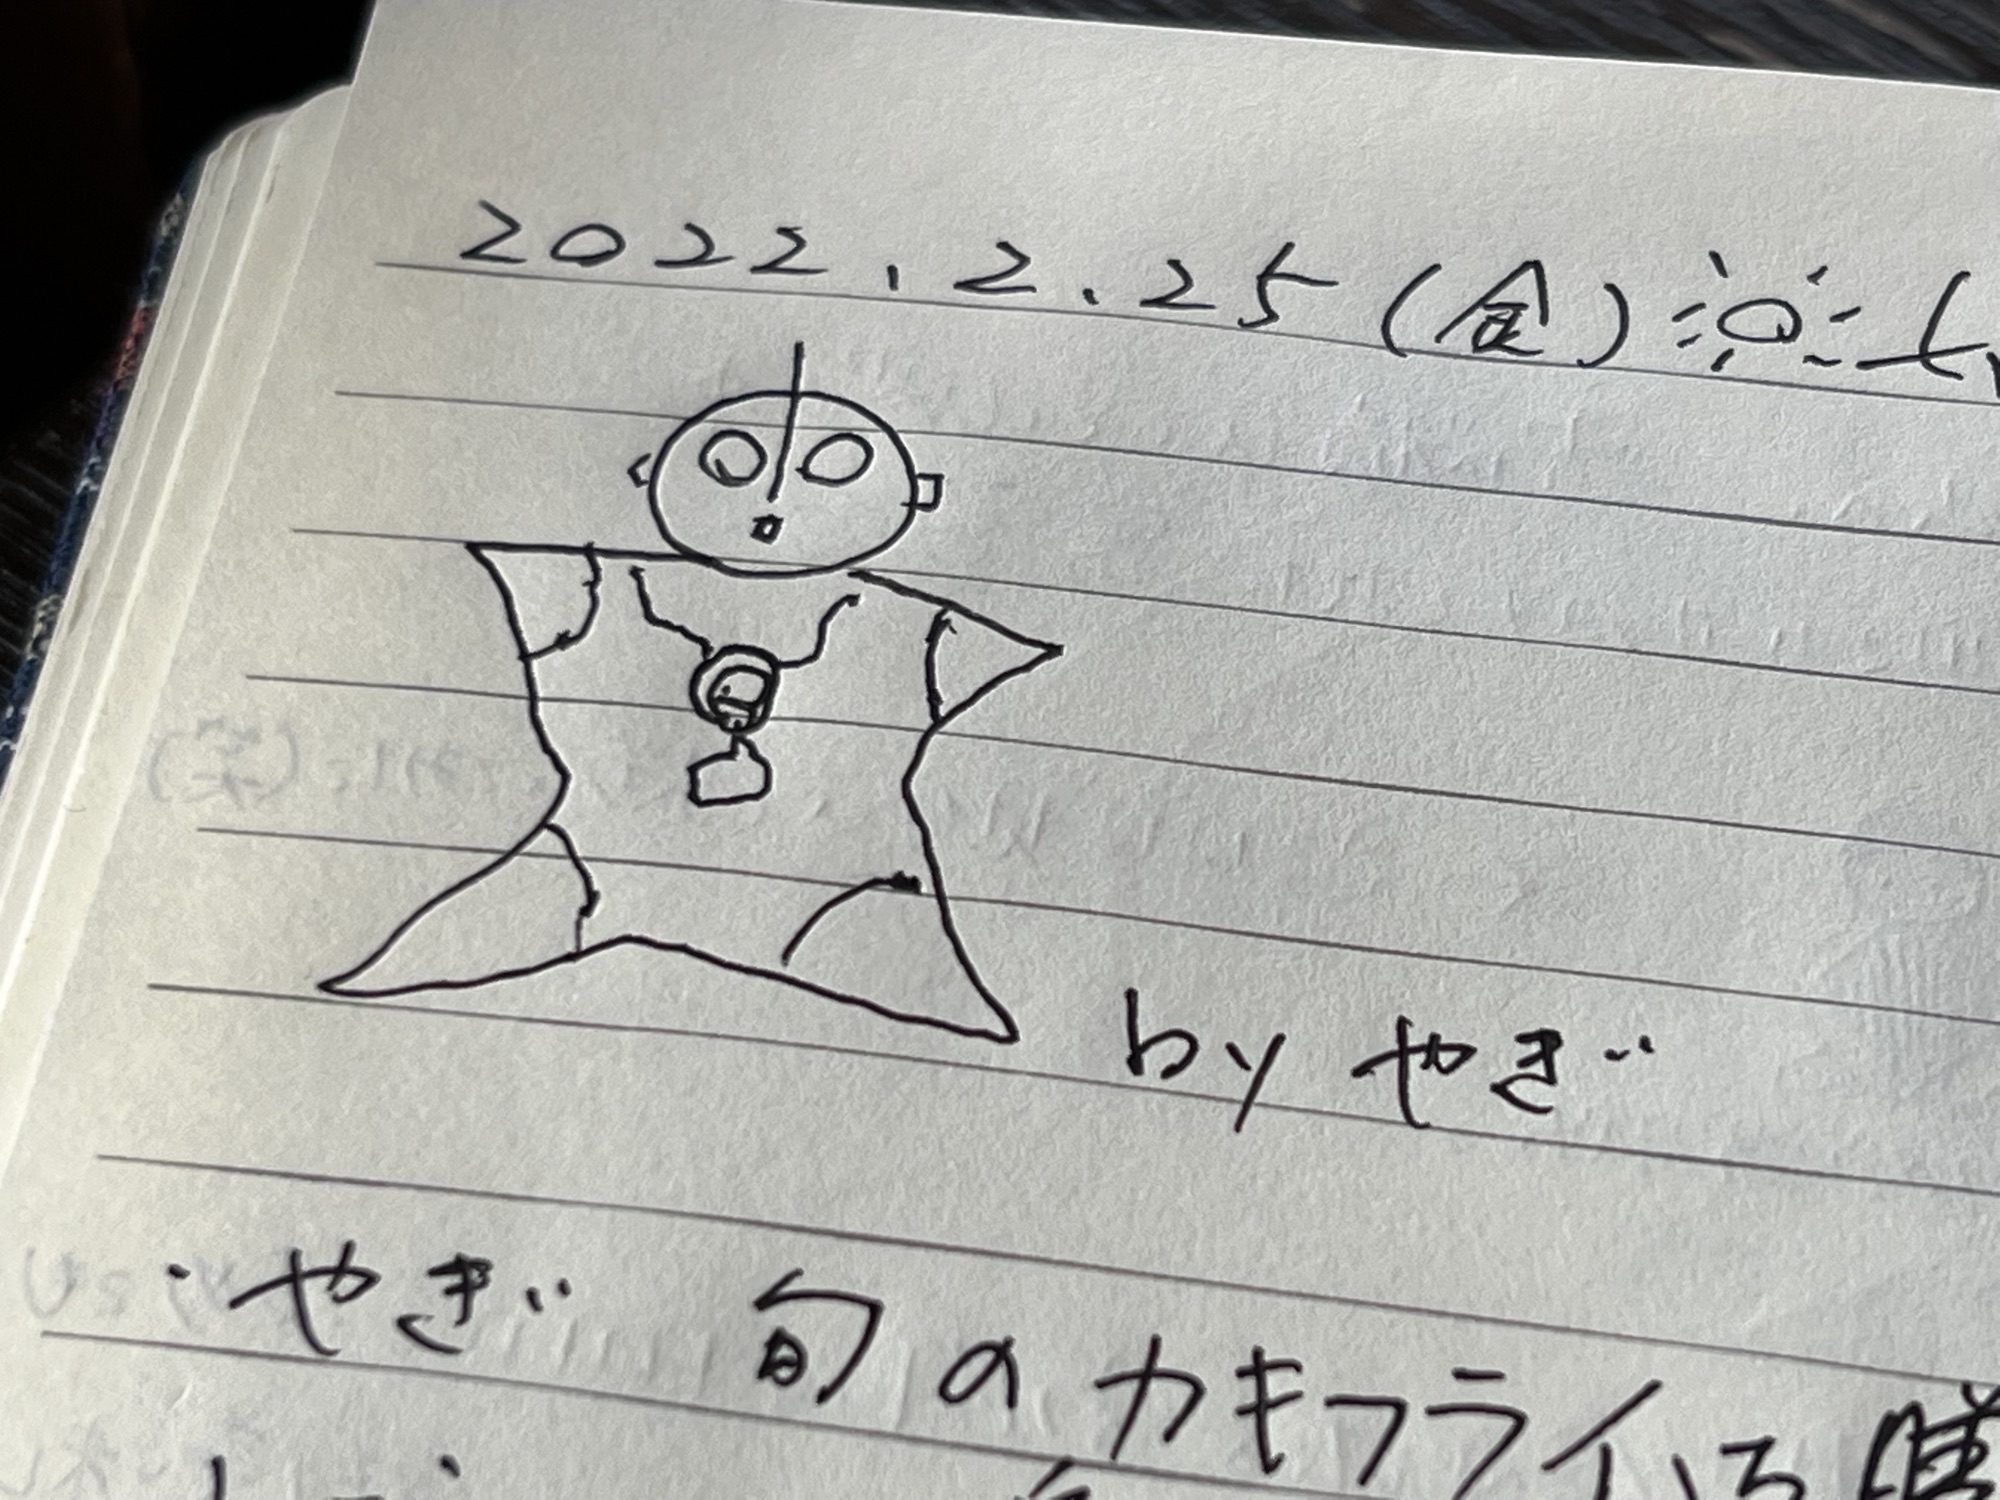 2022.2.25(金)
by やぎ
・やぎ 旬のカキフライいち